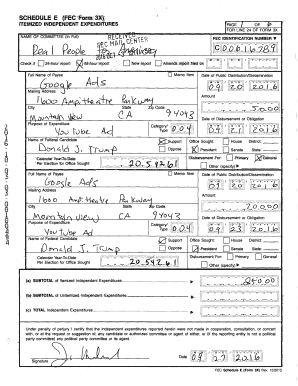 SCHEDULE E (FEC Form 3X)
ITEMIZED INDEPENDENT EXPENDITURES
PAGE OF
FOR LINE 24 OF FORM 3X
NAME OF COMMITTEE (In Full)
RECEIVED
FEC MAIL CENTER
FEC IDENTIFICATION NUMBER
Real People for
Check if 24-hour report 48-hour report New report Amends report filed on
Full Name of Payee Memo Item
Google Ads
Date of Public Distribution/Dissemination
09 20 2016
Mailing Address
1600 Ampitheatre Parkway
Amount
5000
City State Zip Code
Mountain View CA 94043
Date of Disbursement or Obligation
09 21 2016
Purpose of Expenditure Category/Type
YouTube Ad 004
Name of Federal Candidate Support Oppose
Donald J. Trump
Office Sought: House District:
President Senate State:
Calendar Year-To-Date Per Election for Office Sought
Disbursement For: Primary General
Other (specify)
Full Name of Payee Memo Item
Google Ads
Date of Public Distribution/Dissemination
09 20 2016
Mailing Address
1600 Ampitheatre Parkway
Amount
City State Zip Code
Mountain View CA 94043
Date of Disbursement or Obligation
09 23 2016
Purpose of Expenditure Category/Type
YouTube Ad 004
Name of Federal Candidate Support Oppose
Donald J. Trump
Office Sought: House District:
President Senate State:
Calendar Year-To-Date Per Election for Office Sought
Disbursement For: Primary General
Other (specify)
(a) SUBTOTAL of Itemized Independent Expenditures
(b) SUBTOTAL of Unitemized Independent Expenditures
(c) TOTAL Independent Expenditures
Under penalty of perjury I certify that the independent expenditures reported herein were not made in cooperation, consultation, or concert
with, or at the request or suggestion of, any candidate or authorized committee or agent of either, or (if the reporting entity is not a political
party committee) any political party committee or its agent.
Signature
Date 09 27 2016
FEC Schedule E (Form 3X)